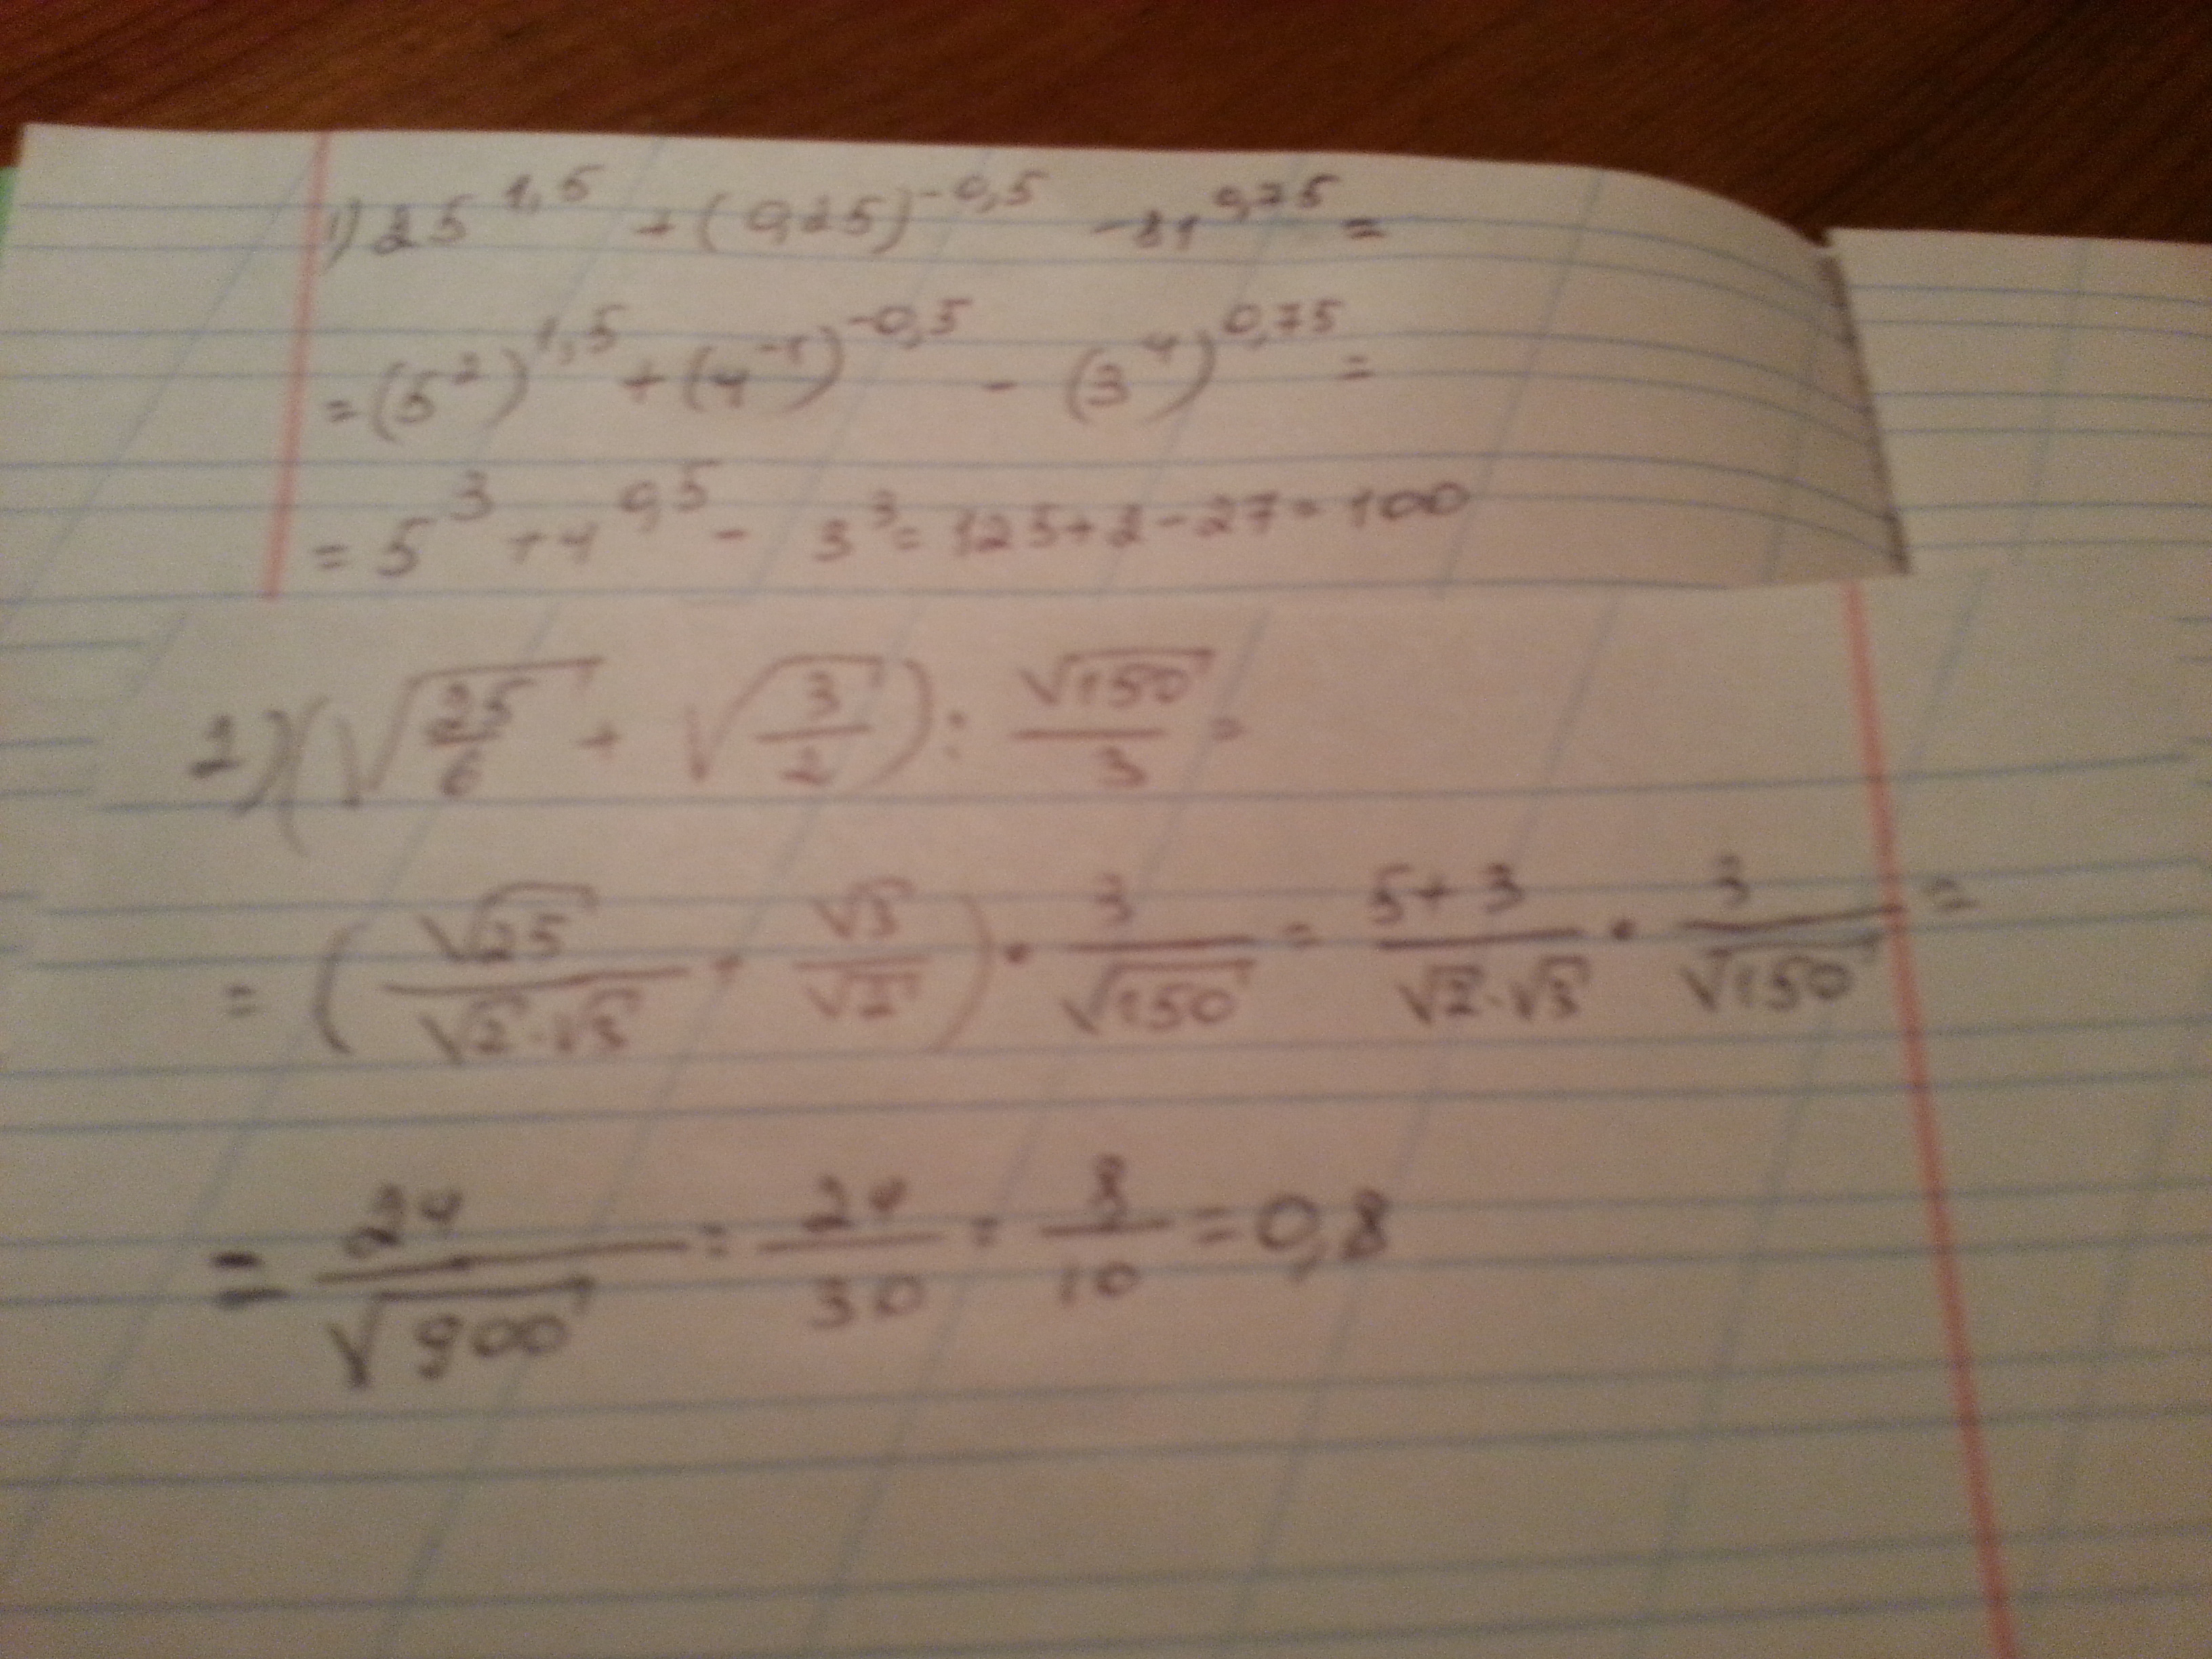 1) 25^1,5 + (0,25)^-0,5 - 81^0,75 =
= (5^2)^1,5 + (4^-1)^-0,5 - (3^4)^0,75 =
= 5^3 + 4^0,5 - 3^3 = 125 + 2 - 27 = 100
2) (√(25/6) + √(3/2)) : √150/3 =
= (√25/(√2·√3) + √3/√2) · 3/√150 = (5+3)/(√2·√3) · 3/√150 =
= 24/√900 = 24/30 = 8/10 = 0,8